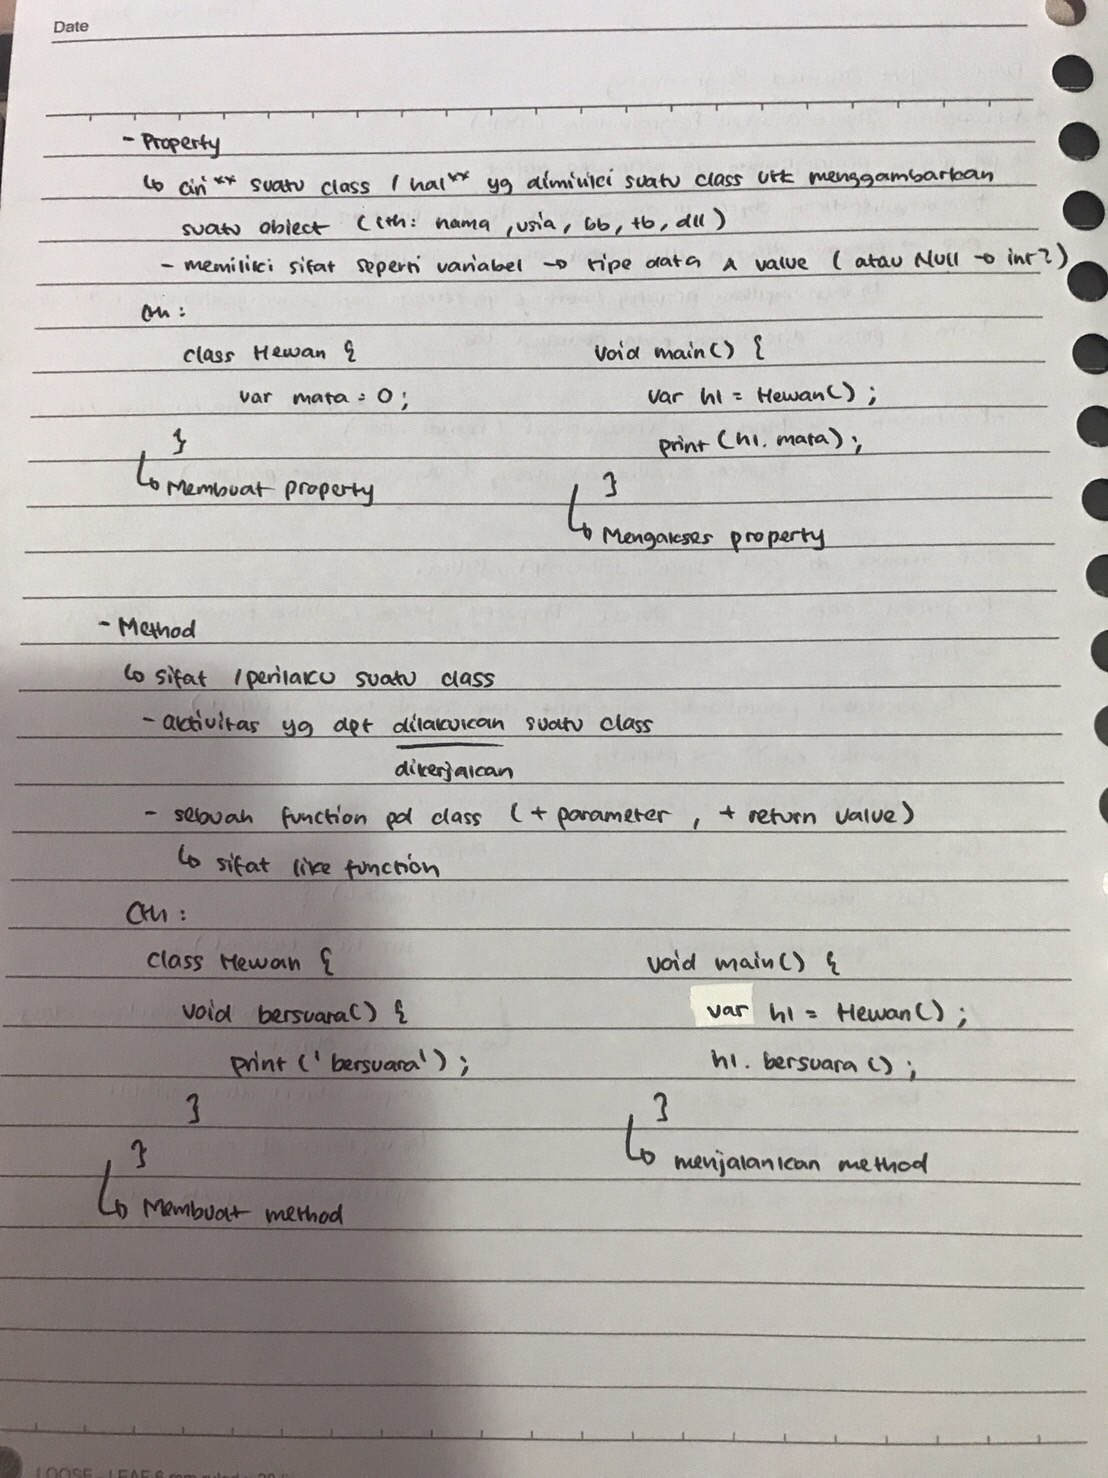 Date
- Property
↳ ciri** suatu class / hal** yg dimiliki suatu class utk menggambarkan
suatu object (cth: nama, usia, bb, tb, dll)
- memiliki sifat seperti variabel → tipe data & value (atau Null → int?)
Cth:
class Hewan {
var mata = 0;
}
↳ Membuat property
void main() {
var h1 = Hewan();
print(h1.mata);
}
↳ Mengakses property
- Method
↳ sifat / perilaku suatu class
- aktivitas yg dpt dilakukan suatu class
dikerjakan
- sebuah function pd class (+ parameter, + return value)
↳ sifat like function
Cth:
class Hewan {
void bersuara() {
print('bersuara');
}
}
↳ Membuat method
void main() {
var h1 = Hewan();
h1.bersuara();
}
↳ menjalankan method